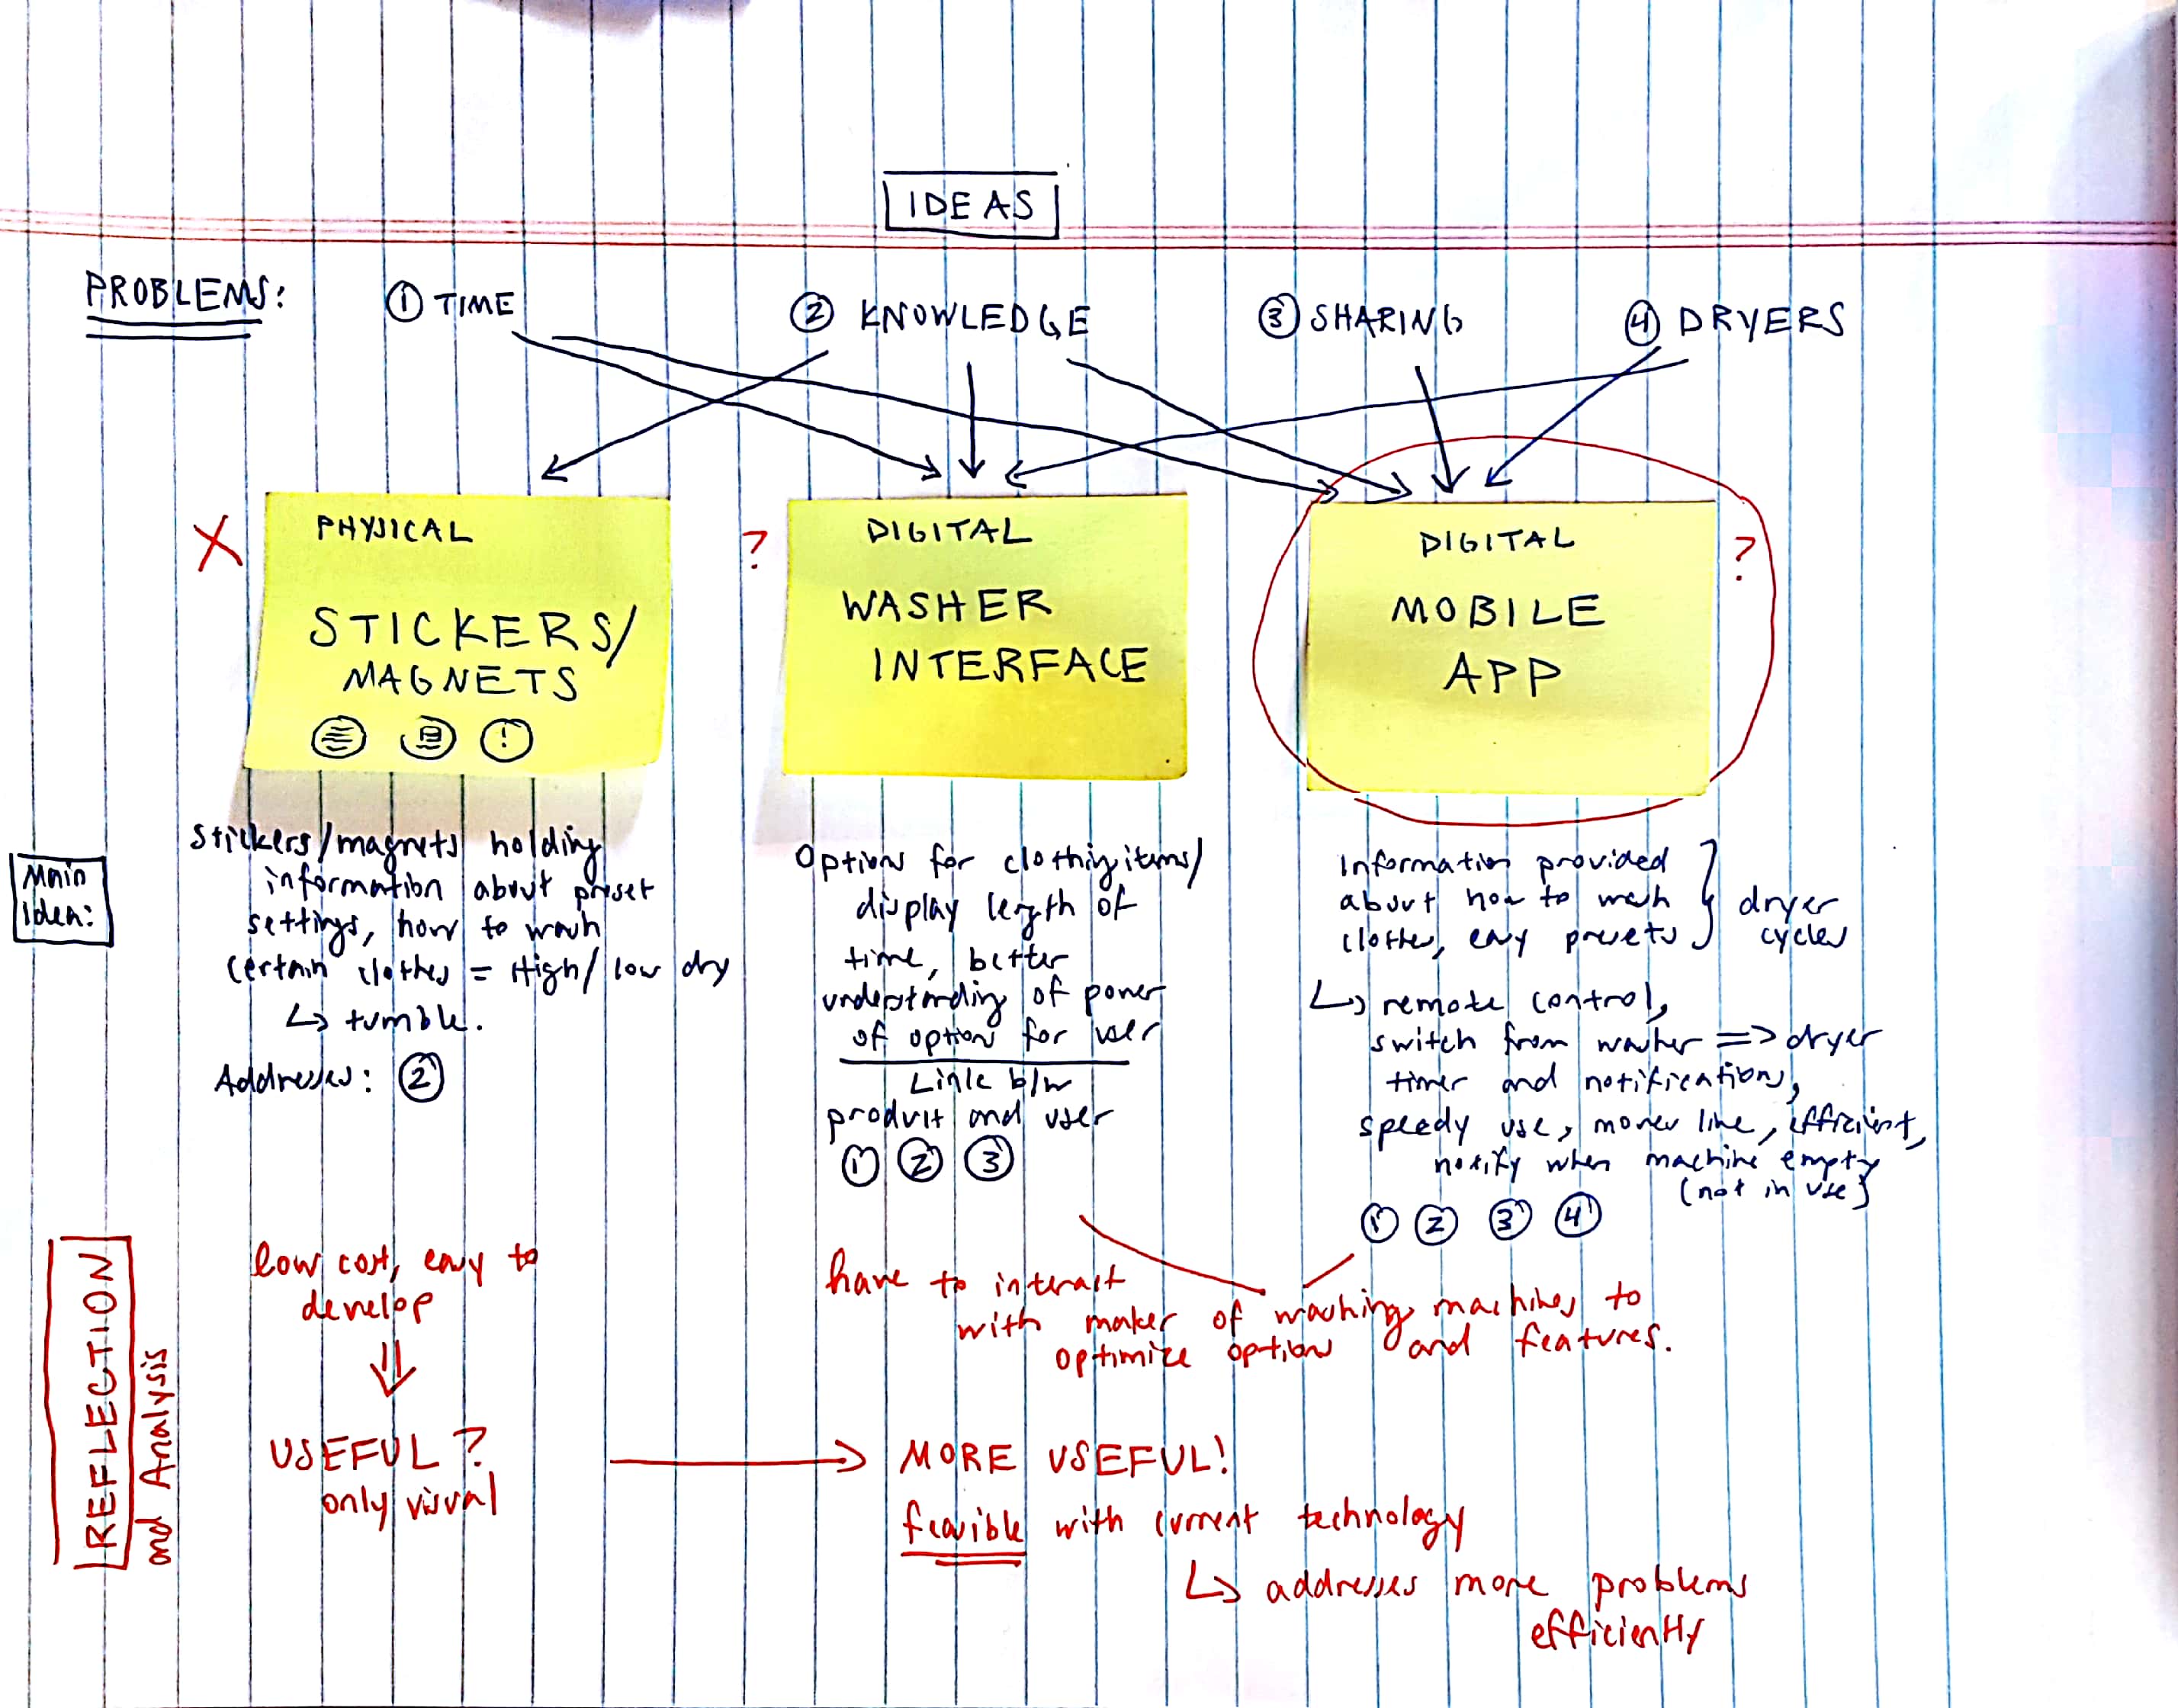 IDEAS
PROBLEMS:
① TIME
② KNOWLEDGE
③ SHARING
④ DRYERS
X
PHYSICAL
STICKERS/
MAGNETS
!
?
DIGITAL
WASHER
INTERFACE
DIGITAL
MOBILE
APP
?
Main
Idea:
Stickers/magnets holding
information about preset
settings, how to wash
certain clothes = High/low dry
↳ tumble.
Addresses: ②
Options for clothing items/
display length of
time, better
understanding of power
of option for user
Link b/w
product and user
① ② ③
Information provided
about how to wash
clothes, easy presets
dryer
cycles
↳ remote control,
switch from washer => dryer
timer and notifications,
speedy use, moves line, efficient,
notify when machine empty
(not in use)
① ② ③ ④
REFLECTION
and Analysis
low cost, easy to
develop
USEFUL?
only visual
have to interact
with maker of washing machines to
optimize options and features.
MORE USEFUL!
feasible with current technology
↳ addresses more problems
efficiently